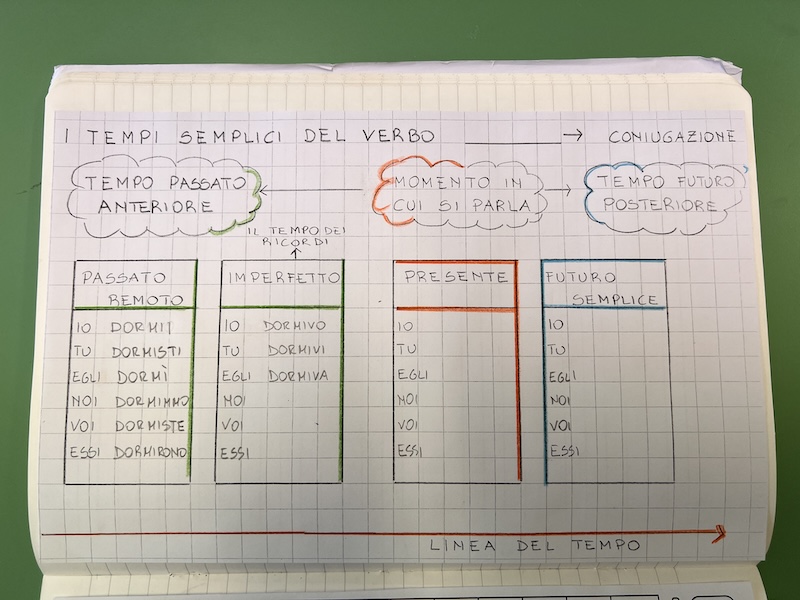 I TEMPI SEMPLICI DEL VERBO ________ → CONIUGAZIONE
TEMPO PASSATO
ANTERIORE
MOMENTO IN
CUI SI PARLA
TEMPO FUTURO
POSTERIORE
IL TEMPO DEI
RICORDI
PASSATO
REMOTO
IO DORMII
TU DORMISTI
EGLI DORMÌ
NOI DORMIMMO
VOI DORMISTE
ESSI DORMIRONO
IMPERFETTO
IO DORMIVO
TU DORMIVI
EGLI DORMIVA
NOI
VOI
ESSI
PRESENTE
IO
TU
EGLI
NOI
VOI
ESSI
FUTURO
SEMPLICE
IO
TU
EGLI
NOI
VOI
ESSI
LINEA DEL TEMPO